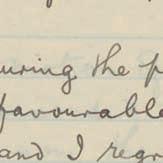 uring the p
favourable
and I regr